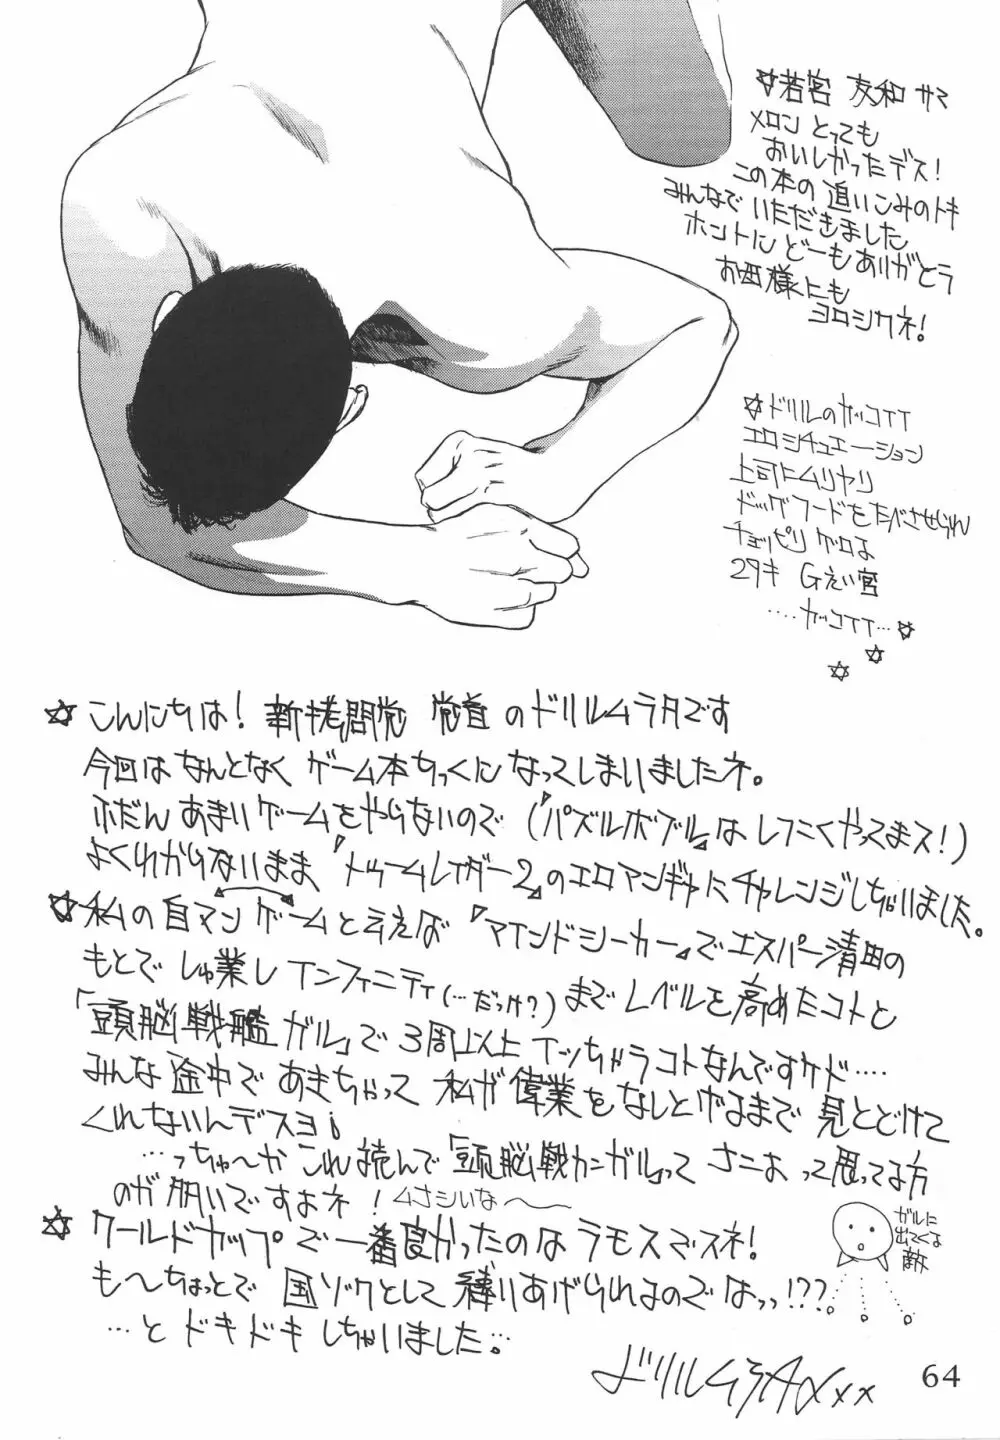 ☆若宮 友和 サマ
メロン とっても
おいしかったデス！
この本の 追いこみのトキ
みんなで いただきました
ホントに どーもありがとう
お母様にも
ヨロシクネ！
☆ドリルのカッコイイ
エロシチュエーション
上司にムリヤリ
ドッグフードをたべさせられ
チョッピリ ゲロな
29才 Gえい官
‥‥カッコイイ…☆
☆ こんにちは！ 新拷問党 党首 のドリルムラタです
今回は なんとなく ゲーム本ちっくに なってしまいましたネ。
ふだん あまりゲームをやらないので (『パズルボブル』は しつこくやってまス！)
よくわからないまま 『トゥームレイダー2』のエロマンガにチャレンジしちゃいました。
☆ 私の自マンゲームと云えば 『マインドシーカー』でエスパー清田の
もとで しゅ業し インフィニティ(…だっけ？) までレベルを高めたコトと
「頭脳戦艦 ガル」で 3周以上 イッちゃったコトなんですケド‥‥
みんな途中で あきちゃって 私が偉業を なしとげるまで 見とどけて
くれないんデスヨ！
…っちゅ〜か これ読んで「頭脳戦カンガル」って ナニよ って思ってる方
のが多いですよネ！ ムナシいな〜
ガルに
出てくる
敵
☆ ワールドカップで一番良かったのは ラモスでスネ！
も〜ちょっとで 国ゾクとして 縛りあげられるのでは…っ!???。
…と ドキドキ しちゃいました。…
ドリルムラタxxx
64